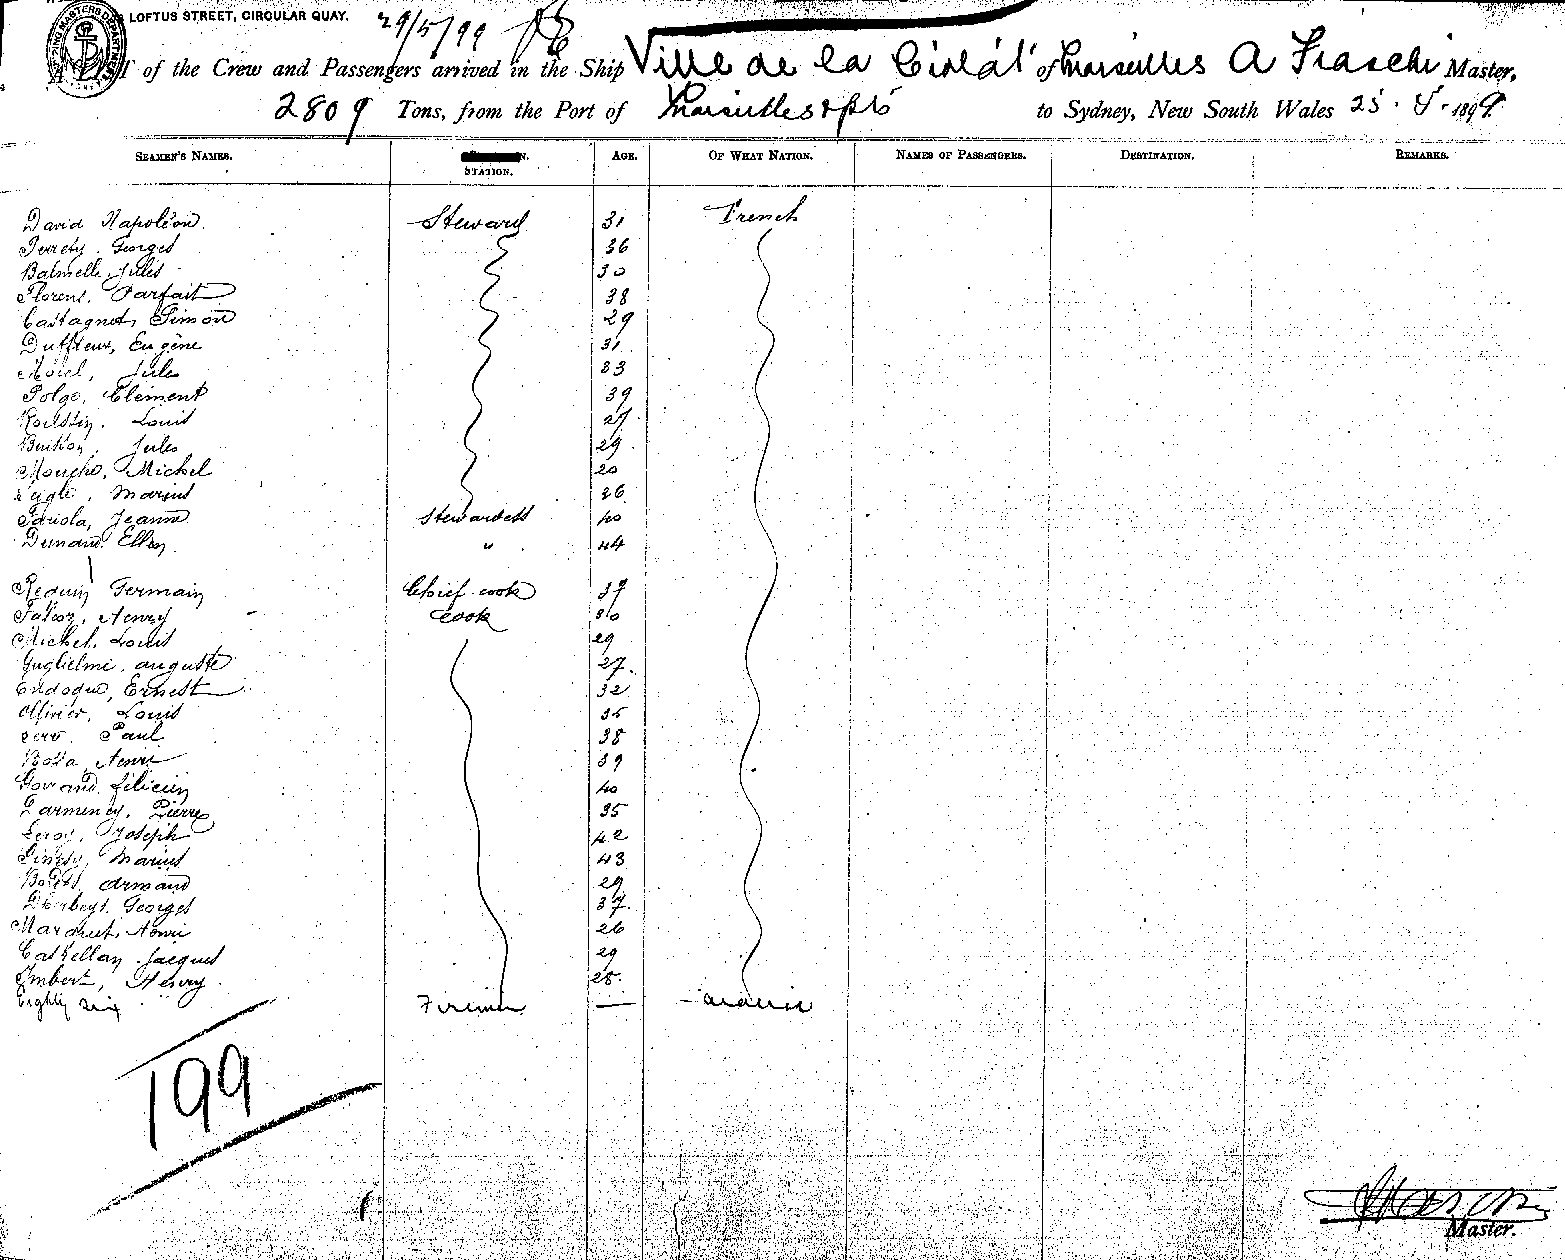 LOFTUS STREET, CIRCULAR QUAY. 29/5/99
of the Crew and Passengers arrived in the Ship Ville de la Ciotat of Marseilles A Fraschi Master,
2809 Tons, from the Port of Marseilles & pts to Sydney, New South Wales 25. 5. 1899.
SEAMEN'S NAMES. STATION. AGE. OF WHAT NATION. NAMES OF PASSENGERS. DESTINATION. REMARKS.
David Napoléon. Steward 31 French
Georges 36
Balmelle, Jules 30
Florent, Parfait 38
Castagnet, Simon 29
Duffieux, Eugène 31
Morel, Jules 33
Polge, Clément 39
Louis 27
Jules 29
Michel 20
Marius 26
Jeanne Stewardess 40
Dunand, Ellen " 44
Requin Germain Chief cook 37
Henry cook 30
Michel, Louis 29
Guglielmi, Auguste 27
Ernest 32
Ollivier, Louis 35
Paul 38
Henri 39
Félicien 40
Darmency, Pierre 35
Leroy, Joseph 42
Marius 43
Armand 29
Georges 37
Henri 26
Castellan, Jacques 29
Imbert, Henry 28
Eighty six Firemen —
199
Master.